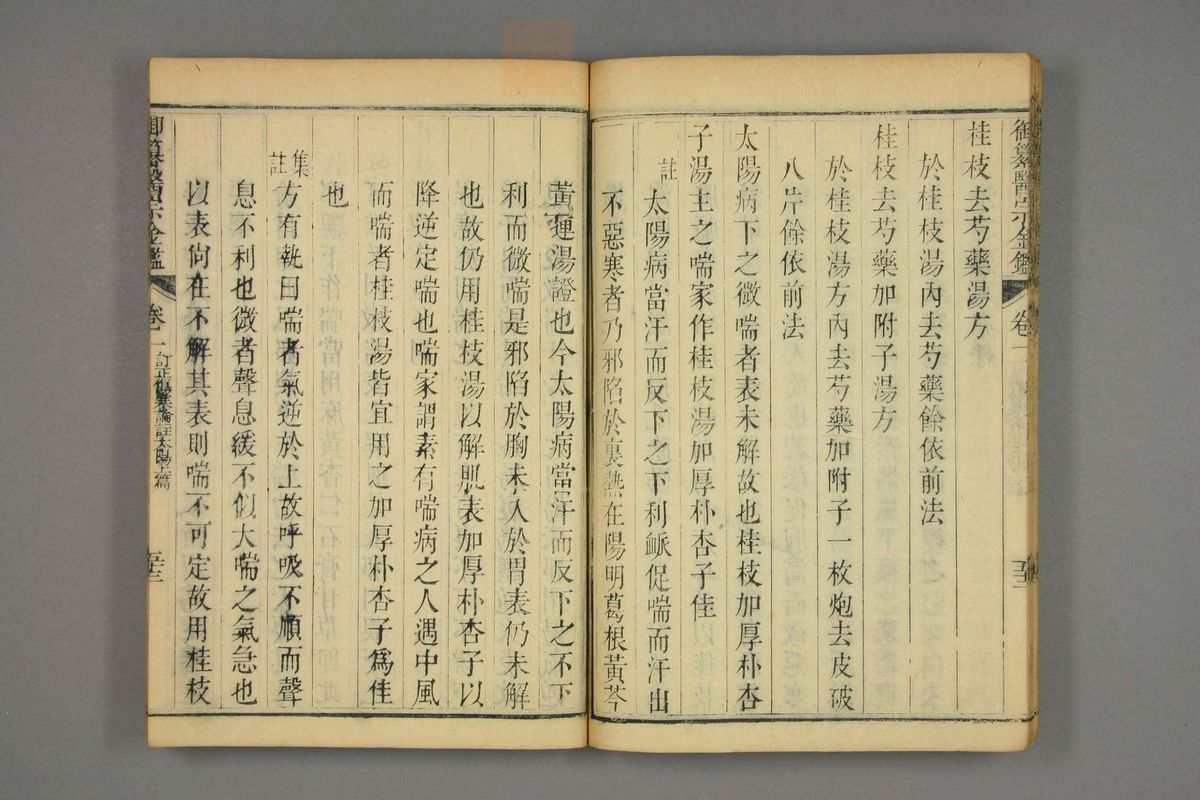 御纂醫宗金鑑
卷一
桂枝去芍藥湯方
於桂枝湯內去芍藥餘依前法
桂枝去芍藥加附子湯方
於桂枝湯方內去芍藥加附子一枚炮去皮破
八片餘依前法
太陽病下之微喘者表未解故也桂枝加厚朴杏
子湯主之喘家作桂枝湯加厚朴杏子佳
註太陽病當汗而反下之下利脈促喘而汗出
不惡寒者乃邪陷於裏熱在陽明葛根黃芩
黃連湯證也今太陽病當汗而反下之不下
利而微喘是邪陷於胸未入於胃表仍未解
也故仍用桂枝湯以解肌表加厚朴杏子以
降逆定喘也喘家謂素有喘病之人遇中風
而喘者桂枝湯皆宜用之加厚朴杏子爲佳
也
集註方有執曰喘者氣逆於上故呼吸不順而聲
息不利也微者聲息緩不似大喘之氣急也
以表尚在不解其表則喘不可定故用桂枝
御纂醫宗金鑑
卷一
訂正傷寒論註太陽上篇
五十三